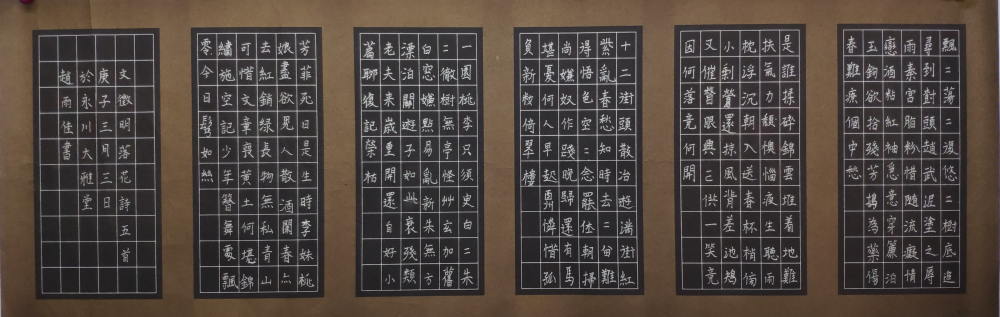 飄二蕩二復悠二樹底追
尋到對頭趙武泥塗之辱
雨秦宮脂粉惜隨流癡情
戀酒粘紅袖急意穿簾泊
玉鉤欲拾殘芳搗為藥傷
春難療個中愁
是誰揉碎錦雲堆着地難
扶氣力頹懊惱夜生聽雨
枕浮沉朝入送春杯梢偷
小剩鶯還掠風背差池鵝
又催督眼興亡供一笑竞
因何落竞何開
十二街頭散冶遊滿街紅
紫亂春愁知時去二留難
得悟色空二念罷休朝掃
尚嫌奴作踐晚歸還有馬
堪憂何人早起勇憐惜孤
負新粉倚翠樓
一園桃李只須臾白二朱
二徹樹無亭怪艸玄加舊
白窓嫌點易亂新朱無方
漂泊關遊子如此衰殘類
老夫来歲重開還自好小
篇聊復記榮枯
芳菲死日是生時李妹桃
娘盡欲兒人散酒闌春亦
去紅銷綠長物無私青山
可惜文章喪黃土何堪錦
繡施空記少年簪舞處飄
零今日鬢如絲
文徵明落花詩五首
庚子三月三日
於永川大雅堂
趙雨佳書